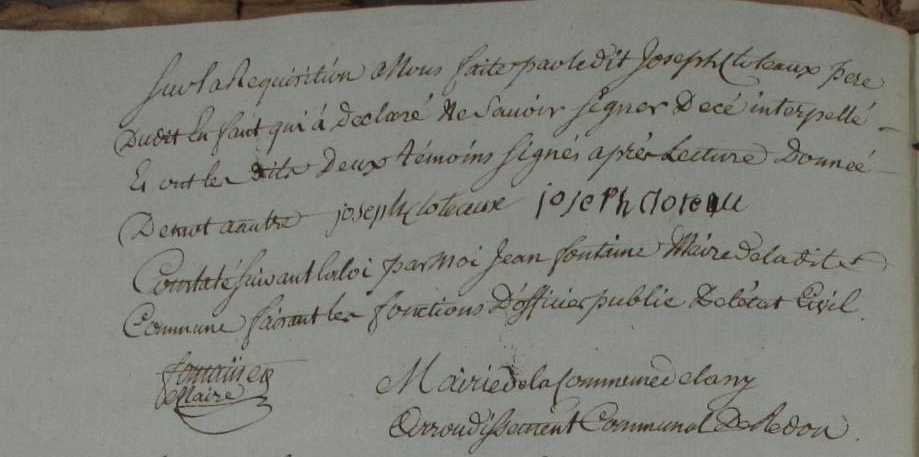 Sur la Requisition a Nous faite par ledit Joseph Cloteaux pere
Dudit Enfant qui à declaré Ne Savoir Signer De cé interpellé
Et ont les dits Deux témoins Signés après Lecture Donneé
De mot a autre joseph cloteaux joseph cloteau
Constaté Suivant la loi par Moi Jean fontaine Maire de la dite
Commune faisant les fonctions D'officier public De l'état Civil.
fontaine
Maire
Mairie de la Commune de
Arrondissement Communal De Redon.